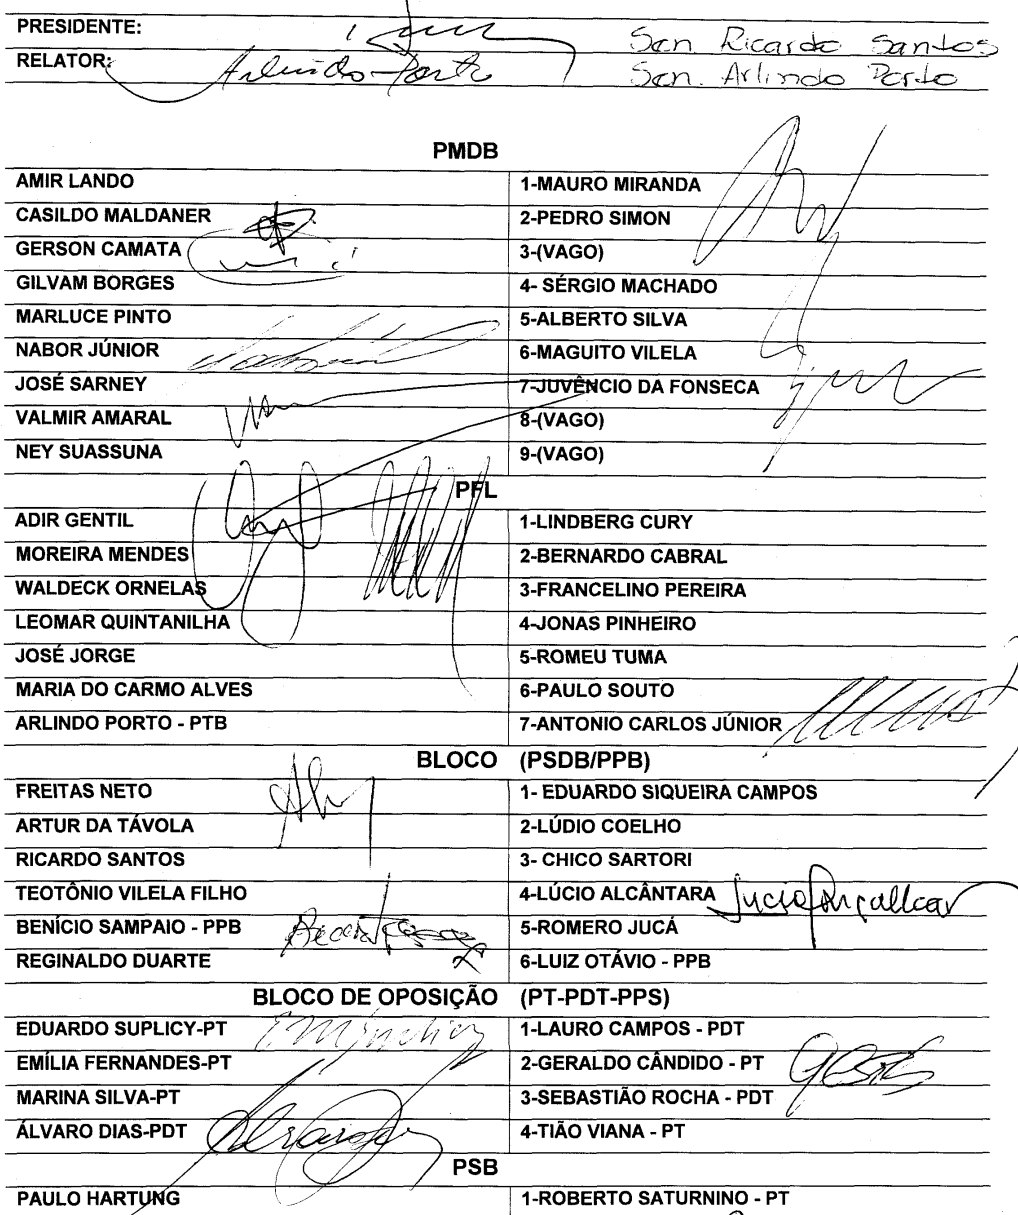 PRESIDENTE: Sen Ricardo Santos
RELATOR: Arlindo Porto Sen. Arlindo Porto
PMDB
AMIR LANDO 1-MAURO MIRANDA
CASILDO MALDANER 2-PEDRO SIMON
GERSON CAMATA 3-(VAGO)
GILVAM BORGES 4- SÉRGIO MACHADO
MARLUCE PINTO 5-ALBERTO SILVA
NABOR JÚNIOR 6-MAGUITO VILELA
JOSÉ SARNEY 7-JUVÊNCIO DA FONSECA
VALMIR AMARAL 8-(VAGO)
NEY SUASSUNA 9-(VAGO)
PFL
ADIR GENTIL 1-LINDBERG CURY
MOREIRA MENDES 2-BERNARDO CABRAL
WALDECK ORNELAS 3-FRANCELINO PEREIRA
LEOMAR QUINTANILHA 4-JONAS PINHEIRO
JOSÉ JORGE 5-ROMEU TUMA
MARIA DO CARMO ALVES 6-PAULO SOUTO
ARLINDO PORTO - PTB 7-ANTONIO CARLOS JÚNIOR
BLOCO (PSDB/PPB)
FREITAS NETO 1- EDUARDO SIQUEIRA CAMPOS
ARTUR DA TÁVOLA 2-LÚDIO COELHO
RICARDO SANTOS 3- CHICO SARTORI
TEOTÔNIO VILELA FILHO 4-LÚCIO ALCÂNTARA
BENÍCIO SAMPAIO - PPB 5-ROMERO JUCÁ
REGINALDO DUARTE 6-LUIZ OTÁVIO - PPB
BLOCO DE OPOSIÇÃO (PT-PDT-PPS)
EDUARDO SUPLICY-PT 1-LAURO CAMPOS - PDT
EMÍLIA FERNANDES-PT 2-GERALDO CÂNDIDO - PT
MARINA SILVA-PT 3-SEBASTIÃO ROCHA - PDT
ÁLVARO DIAS-PDT 4-TIÃO VIANA - PT
PSB
PAULO HARTUNG 1-ROBERTO SATURNINO - PT